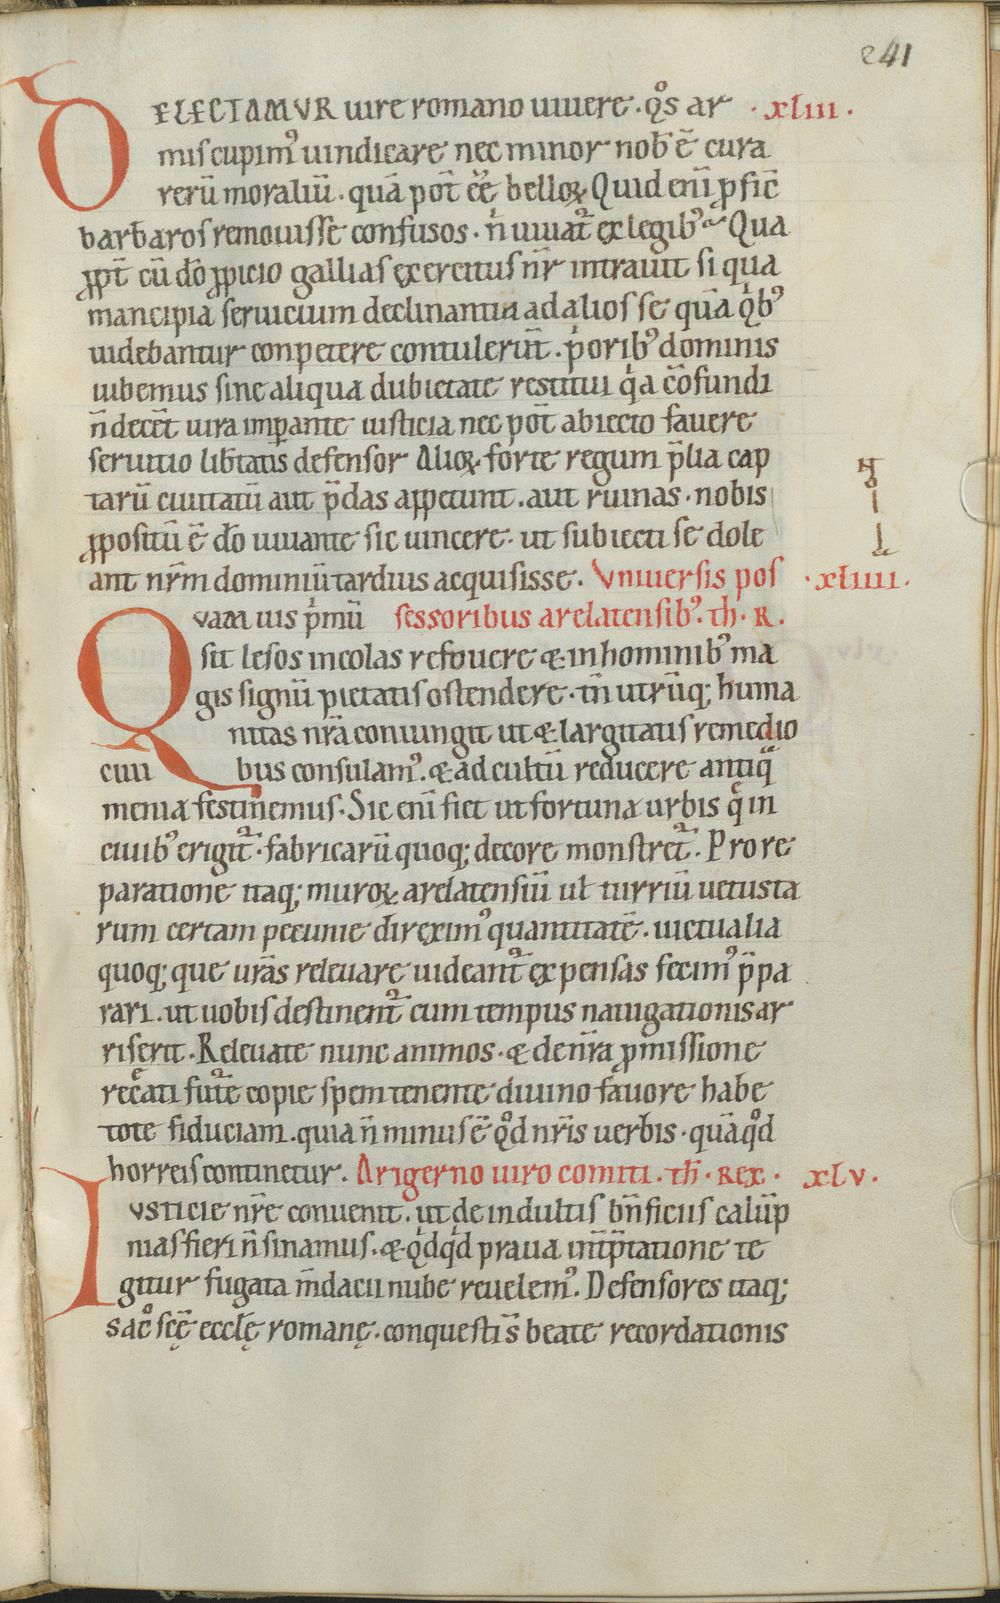 241
DELECTAMUR iure romano uiuere. qͦs ar · xliii ·
mis cupimꝰ uindicare nec minor nob̄ ē cura
rerū moraliū . quā pot̄ eē belloꝝ Quid enī ꝓfic̄
barbaros remouisse confusos . n̄ uiuat᷑ ex legibꝰ Qua
ꝓpt̄ cū dō ꝓpicio gallias exercitus nr̄ intrauit si qua
mancipia seruicium declinantia ad alios se quā qͥbꝰ
uidebantur conpetere contulerūt . pͥoribꝰ dominis
iubemus sine aliqua dubietate restitui qͥa cōfundi
n̄ decēt iura imꝑante iusticia nec pot̄ abiecto fauere
seruitio lib̄tatis defensor Alioꝝ forte regum p̄lia cap
tarū ciuitatū aut p̄das appetunt . aut ruinas . nobis
ꝓpositū ē dō iuuante sic uincere . ut subiecti se dole
ant nr̄m dominiū tardius acquisisse . Vniuersis pos · xliiii ·
Quam uis pͥmū sessoribus arelatensibꝰ . th̄ . R .
sit lesos incolas refouere & in hominibꝰ ma
gis signū pietatis ostendere . tn̄ utrūq; huma
nitas nr̄a coniungit ut & largitatis remedio
ciui bus consulamꝰ . & ad cultū reducere antiq̄
menia festinemus . Sic enī fiet ut fortuna urbis q̄ in
ciuibꝰ erigit᷑ . fabricarū quoq; decore monstret᷑ . Pro re
paratione itaq; muroꝝ arelatensiū ul̄ turriū uetusta
rum certam pecunie direximꝰ quantitatē . uictualia
quoq; que ur̄as releuare uideant᷑ expensas fecimꝰ p̄pa
rari . ut uobis destinent᷑ cum tempus nauigationis ar
riserit . Releuate nunc animos . & de nr̄a ꝓmissione
recͣti fut᷑e copie spem tenente diuino fauore habe
tote fiduciam . quia n̄ minus ē qͦd nr̄is uerbis . quā qͦd
horreis continetur . Arigerno uiro comiti . th̄ . REX . xlv .
Iusticie nr̄e conuenit . ut de indultis bn̄ficiis calūp
nias fieri n̄ sinamus . & qͥdqͥd praua int̄p̄tatione te
gitur fugata m̄dacii nube reuelemꝰ . Defensores itaq;
sacͦ scę̄ eccl̄ę romanę . conquesti s̄ beate recordationis